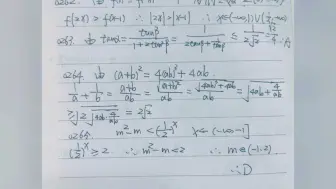 f(2x) > f(x-1) ∴ |2x| > |x-1| ∴ x∈(-∞,-1)∪(1/3,+∞)
0263. 由 tanα = tanβ/(1+2tan²β) = 1/(2tanβ+1/tanβ) ≤ 1/(2√2) = √2/4 ∴A
0264 由 (a+b)² = 4(ab)³+4ab
1/a + 1/b = (a+b)/ab = √(a+b)²/ab = √(4(ab)³+4ab)/ab = √(4ab+4/ab)
≥ √(2√(4ab·4/ab)) = 2√2
0265. m²-m < (1/2)^x x∈(-∞,-1]
(1/2)^x ≥ 2 ∴ m²-m<2 ∴ m∈(-1,2)
∴D